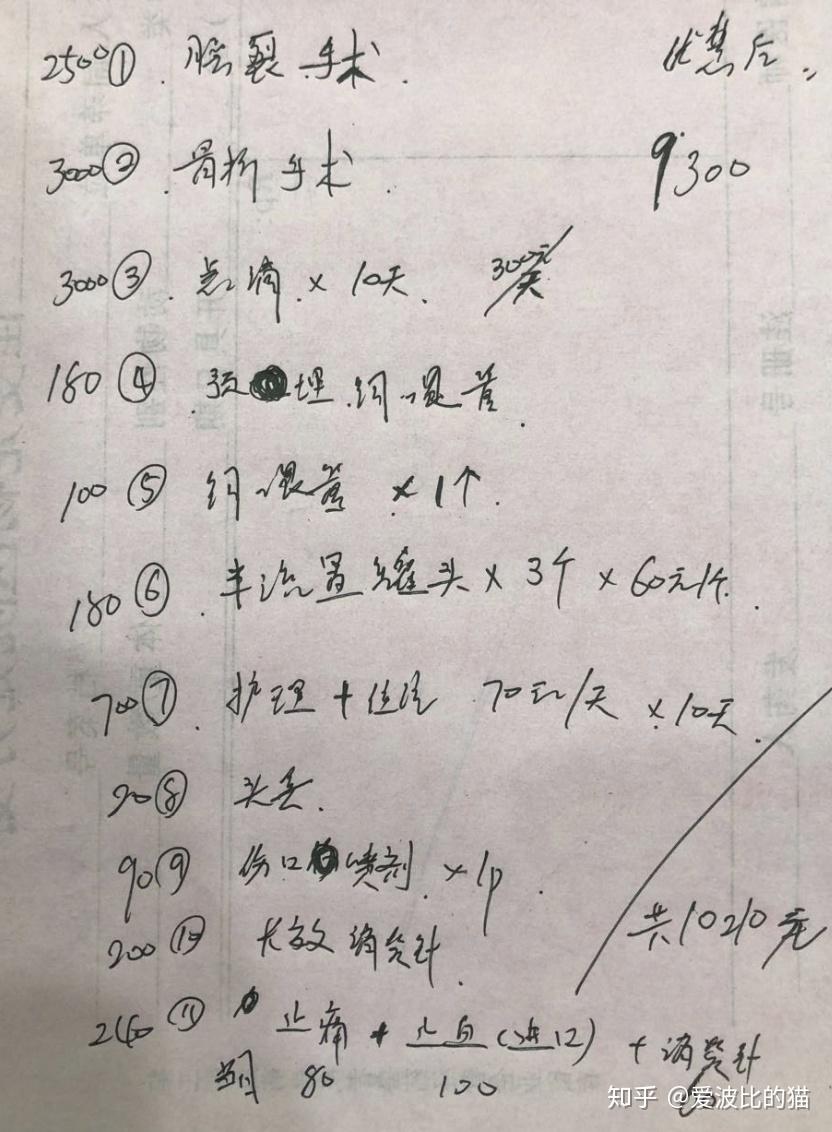 2500① 腭裂手术. 优惠后
3000② 骨折手术. 9300
3000③ 点滴 × 10天. 300元/天
180④ 预埋饲喂管.
100⑤ 饲喂管 × 1个.
180⑥ 半流置罐头 × 3个 × 60元/个.
700⑦ 护理 + 住院 70元/天 × 10天.
20⑧ 头套.
90⑨ 伤口喷剂 × 1
200⑩ 长效消炎针.
共10210元
240⑪ 止痛 + 止血(进口) + 消炎针
80 100
知乎 @爱波比的猫